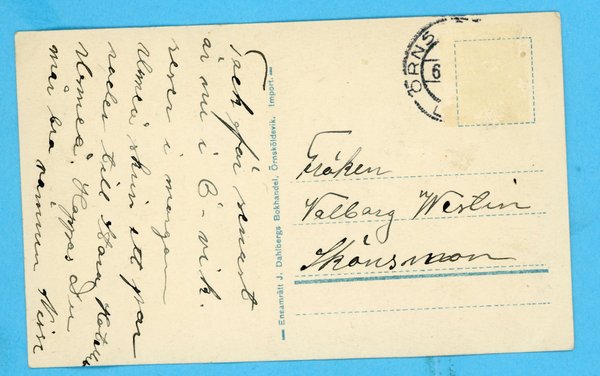 Tack för senast
är nu i Ö-vik.
reser i morgon
Umeå skriv ett par
rader till Storg Hotell
Umeå. Hoppas Du
mår bra vännen Nisse
Ensamrätt J. Dahlbergs Bokhandel, Örnsköldsvik. Import.
ÖRNS
6
Fröken
Valborg Westlin
Skönsmon